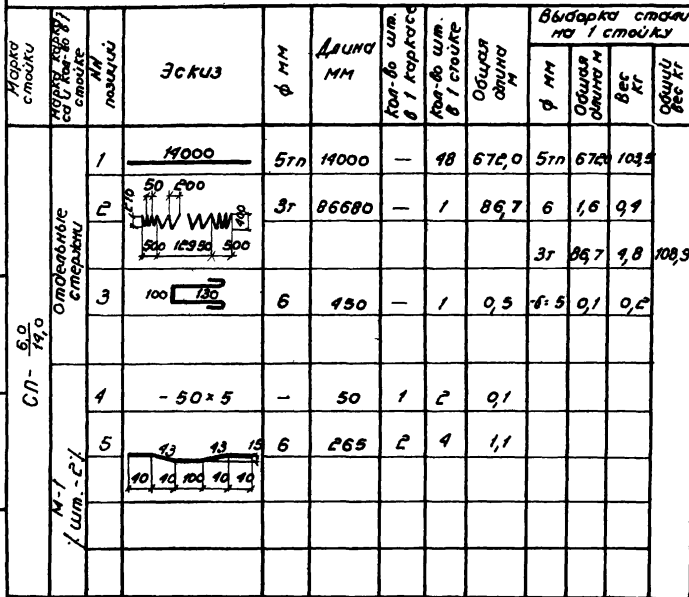 Марка стойки
Марка карка-
са и кол-во в 1
стойке
NN позиций
Эскиз
ф мм
Длина
мм
Кол-во шт.
в 1 каркасе
Кол-во шт.
в 1 стойке
Общая
длина
м
Выборка стали
на 1 стойку
ф мм
Общая
длина м
Вес
кг
Общий
вес кг
СП- 6,0/14,0
Отдельные
стержни
1 14000 5тп 14000 — 48 672,0 5тп 672,0 103,5
50 200
2 210 400 3т 86680 — 1 86,7 6 1,6 0,4
500 12950 500
3т 86,7 4,8 108,9
3 100 130 6 450 — 1 0,5 -δ=5 0,1 0,2
М-1
/шт.-2/
4 -50×5 — 50 1 2 0,1
5 43 43 15 6 265 2 4 1,1
40 40 100 40 40